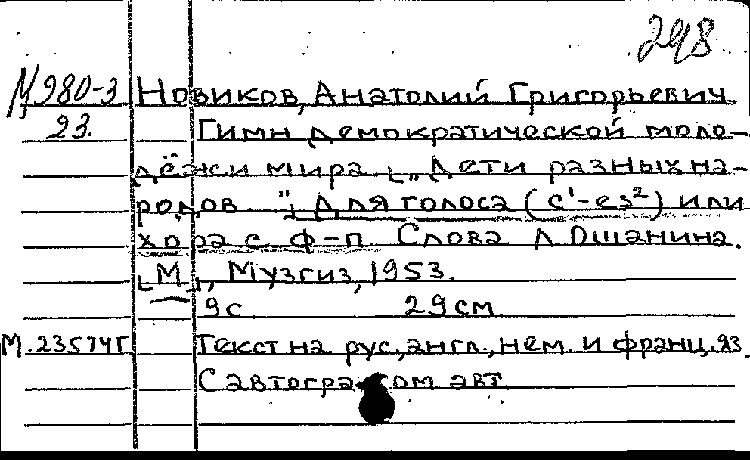 298
М 980-3 Новиков, Анатолий Григорьевич
23. Гимн демократической моло-
дёжи мира. [„Дети разных на-
родов..."] Для голоса (c¹-es²) или
хора с ф-п. Слова Л. Ошанина.
[М.], Музгиз, 1953.
9с 29см
М.23574г Текст на рус., англ., нем. и франц. яз.
С автографом авт.